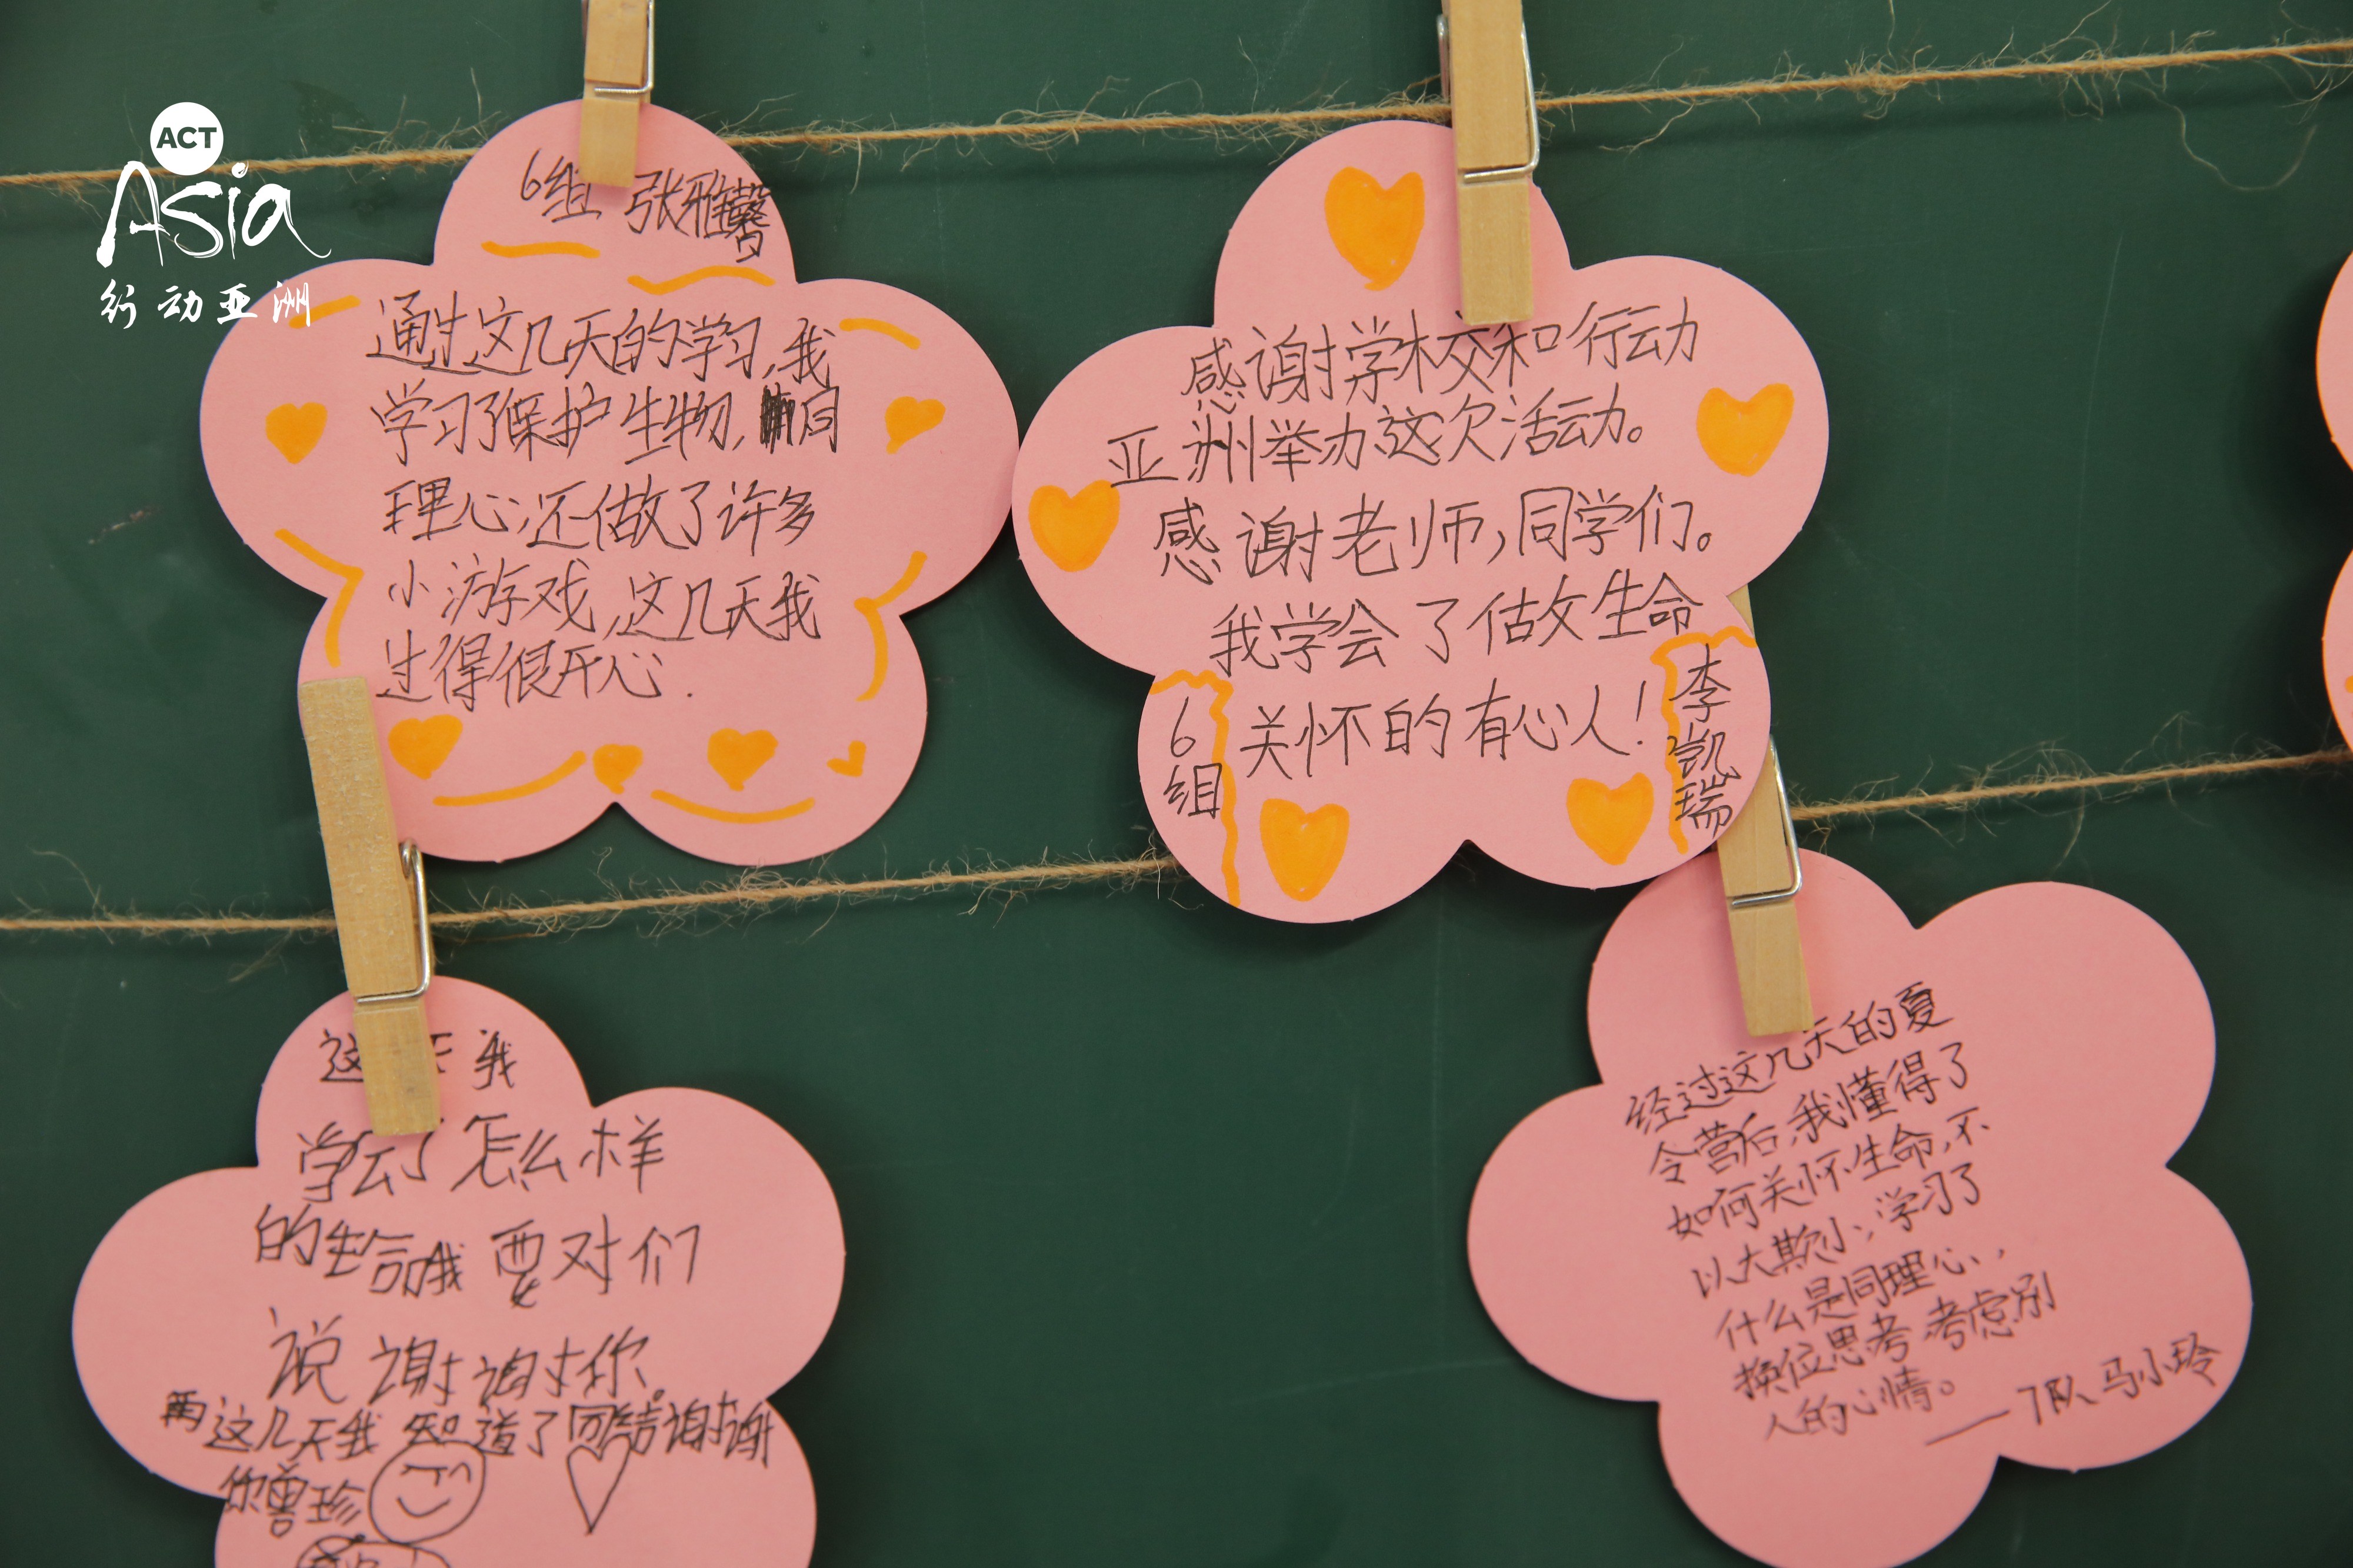 ACT
Asia
行动亚洲
6组 张雅馨
通过这几天的学习,我
学习了保护生物,同
理心,还做了许多
小游戏,这几天我
过得很开心.
感谢学校和行动
亚洲举办这次活动。
感谢老师,同学们。
我学会了做生命
关怀的有心人!
6组
李凯瑞
这 天我
学会了怎么样
的生命我要对们
说谢谢你。
这几天我知道了团结谢谢
你曾珍
经过这几天的夏
令营后,我懂得了
如何关怀生命,不
以大欺小;学习了
什么是同理心,
换位思考,考虑别
人的心情。
——7队马小玲